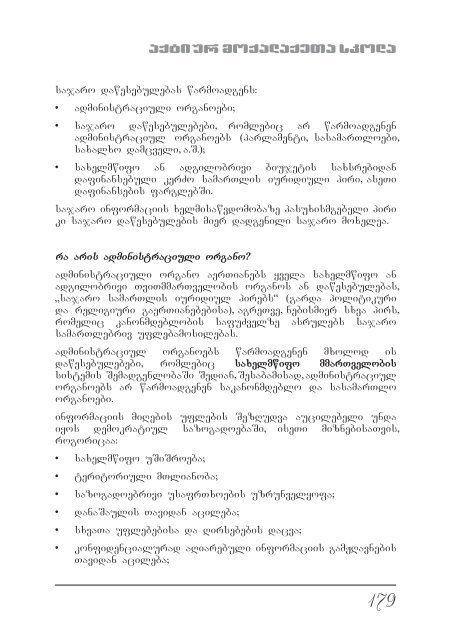 აქტიურ მოქალაქეთა სკოლა
საჯარო დაწესებულებას წარმოადგენს:
• ადმინისტრაციული ორგანოები;
• საჯარო დაწესებულებები, რომლებიც არ წარმოადგენენ
ადმინისტრაციულ ორგანოებს (პარლამენტი, სასამართლოები,
სახალხო დამცველი, ა.შ.);
• სახელმწიფო ან ადგილობრივი ბიუჯეტის სახსრებიდან
დაფინანსებული კერძო სამართლის იურიდიული პირი, ასეთი
დაფინანსების ფარგლებში.
საჯარო ინფორმაციის ხელმისაწვდომობაზე პასუხისმგებელი პირი
კი საჯარო დაწესებულების მიერ დადგენილი საჯარო მოხელეა.
რა არის ადმინისტრაციული ორგანო?
ადმინისტრაციული ორგანო აერთიანებს ყველა სახელმწიფო ან
ადგილობრივი თვითმმართველობის ორგანოს ან დაწესებულებას,
„საჯარო სამართლის იურიდიულ პირებს“ (გარდა პოლიტიკური
და რელიგიური გაერთიანებებისა), აგრეთვე, ნებისმიერ სხვა პირს,
რომელიც კანონმდებლობის საფუძველზე ასრულებს საჯარო
სამართლებრივ უფლებამოსილებას.
ადმინისტრაციულ ორგანოებს წარმოადგენენ მხოლოდ ის
დაწესებულებები, რომლებიც სახელმწიფო მმართველობის
სისტემის შემადგენლობაში შედიან, შესაბამისად, ადმინისტრაციულ
ორგანოებს არ წარმოადგენენ საკანონმდებლო და სასამართლო
ორგანოები.
ინფორმაციის მიღების უფლების შეზღუდვა აუცილებელი უნდა
იყოს დემოკრატიულ საზოგადოებაში, ისეთი მიზნებისათვის,
როგორიცაა:
• სახელმწიფო უშიშროება;
• ტერიტორიული მთლიანობა;
• საზოგადოებრივი უსაფრთხოების უზრუნველყოფა;
• დანაშაულის თავიდან აცილება;
• სხვათა უფლებებისა და ღირსებების დაცვა;
• კონფიდენციალურად აღიარებული ინფორმაციის გამჟღავნების
თავიდან აცილება;
179